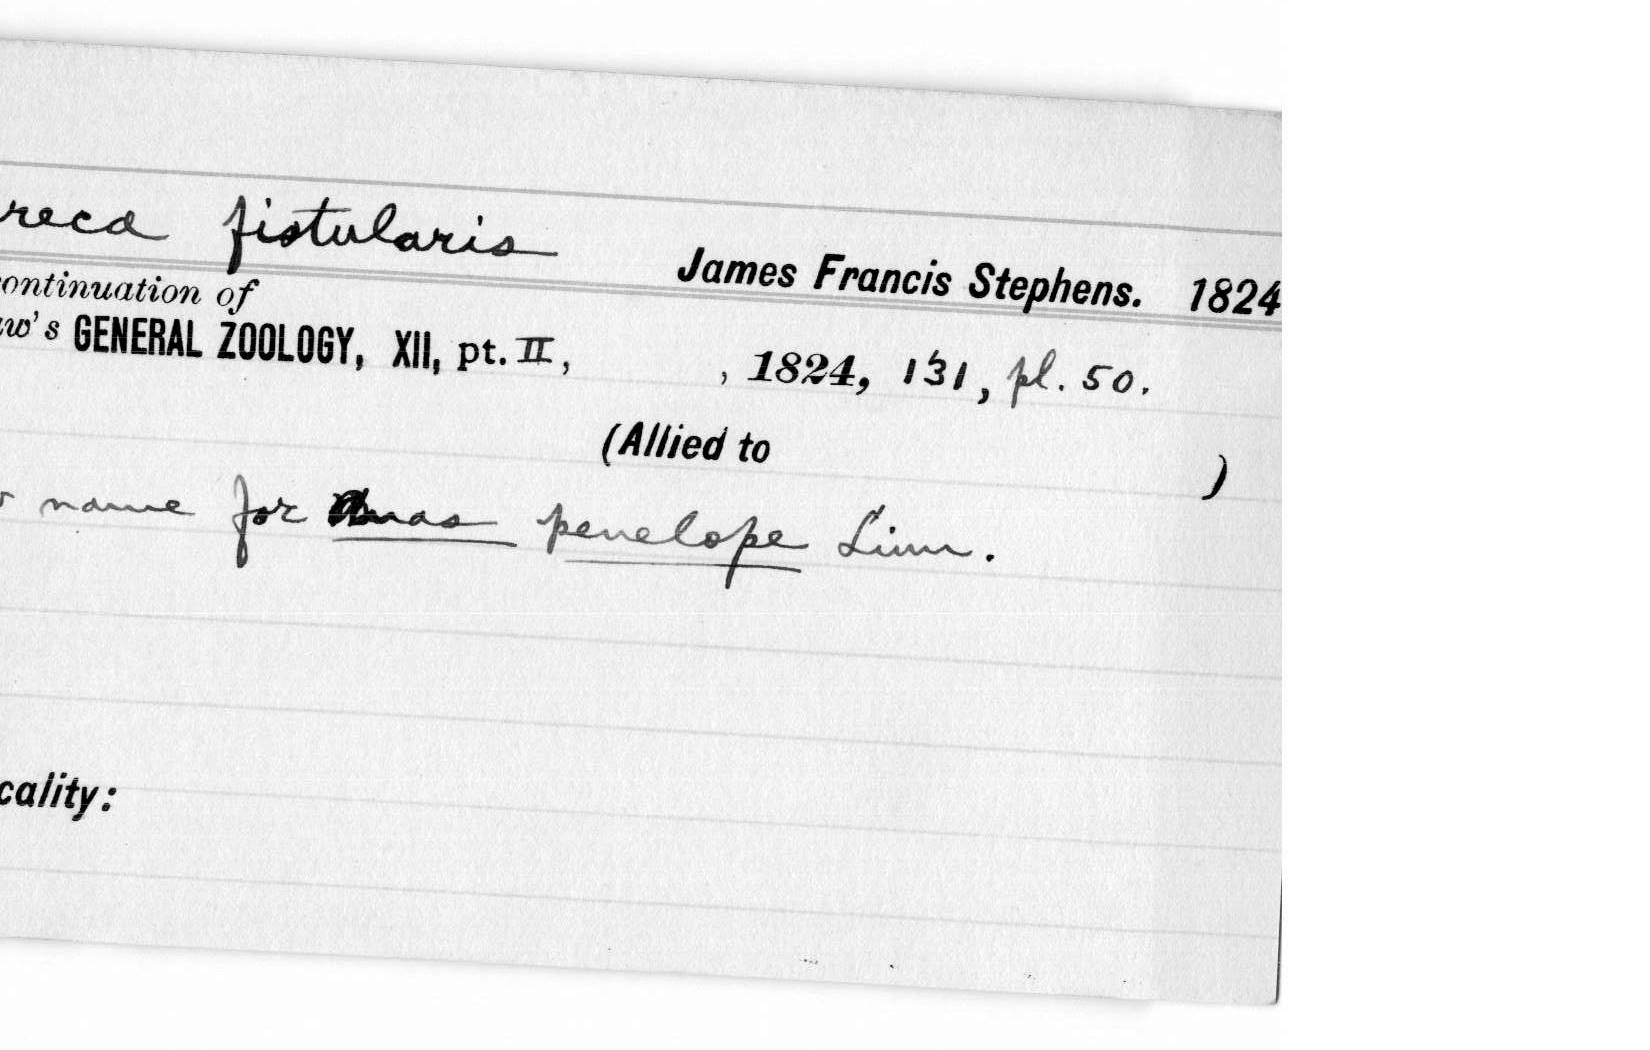 reca fistularis
James Francis Stephens. 1824
ontinuation of
aw's GENERAL ZOOLOGY, XII, pt. II, , 1824, 131, pl. 50.
(Allied to )
name for Anas penelope Linn.
cality: